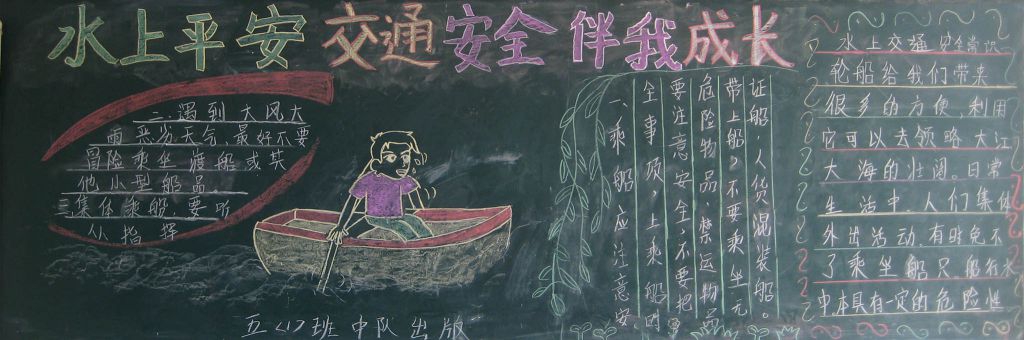 水上平安 交通安全 伴我成长
二.遇到大风大
雨恶劣天气,最好不要
冒险乘坐渡船或其
他小型船品.
三集体乘船要听
从指挥
一、乘船应注意安
全事项,上乘船时
要注意安全,不要把
危险物品、禁运物品
带上船,不要乘坐无
证船、人货混装船。
水上交通 安全常识
轮船给我们带来
很多的方便,利用
它可以去领略大江
大海的壮阔。日常
生活中,人们集体
外出活动,有时免不
了乘坐船只,船行水
中本具有一定的危险性
五<1>班中队出版